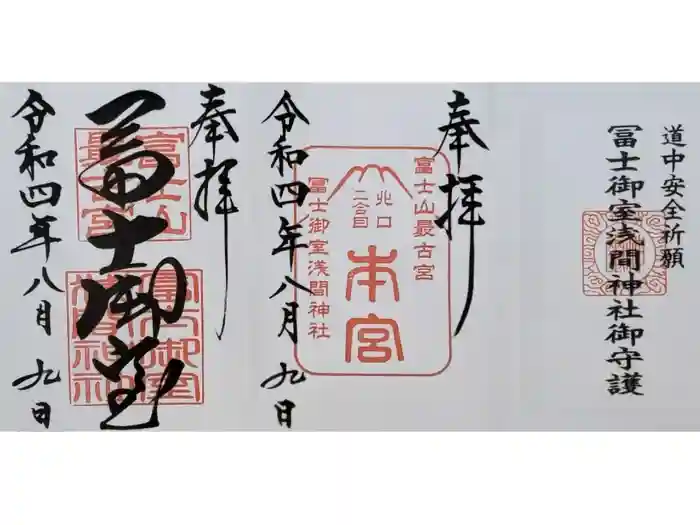 道中安全祈願
冨士御室浅間神社御守護
奉拝
富士山最古宮
北口
二合目
本宮
冨士御室浅間神社
令和四年八月九日
奉拝
富士山
最古宮
冨士御室
冨士御室
浅間神社
令和四年八月九日